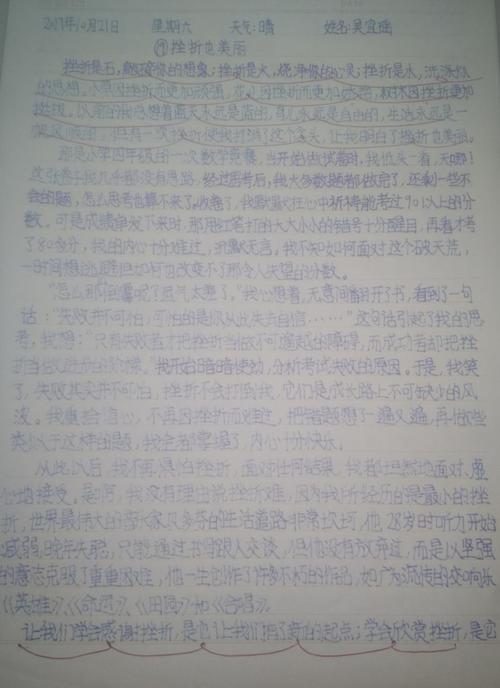 2017年10月21日 星期六 天气:晴 姓名:吴宜瑶
挫折也美丽
挫折是石,敲碎你的想象;挫折是火,烧净你的心灵;挫折是水,洗涤你
的思想。小草因挫折而更加顽强,花儿因挫折而更加娇艳,树木因挫折更加
挺拔。以前的我总想着蓝天永远是蓝的,鸟儿永远是自由的,生活永远是一
帆风顺的,但有一次挫折使我打消了这个念头,让我明白了挫折也美丽。
那是小学四年级的一次数学竞赛,当开始做试卷时,我低头一看,天哪!
这张卷子我几乎都没有思路,经过思考后,我大多数题都做完了,还剩一些不
会的题,怎么思考也算不来了。收卷了,我默默在心中祈祷能考过90以上的分
数。可是成绩单发下来时,那用红笔打的大大小小的错号十分醒目,再看才考
了80多分,我的内心十分难过,沉默无言。我不知如何面对这个破天荒,
一时间想逃避但如何也改变不了那令人失望的分数。
“怎么那么倒霉呢?运气太差了。”我心想着,无意间翻开了书,看到了一句
话:“失败并不可怕,可怕的是你从此失去自信······”这句话引起了我的思
考,我想:“只有失败者才把挫折当做不可逾越的障碍,而成功者却把挫
折当做进步的阶梯。”我开始暗暗使劲,分析考试失败的原因。于是,我笑
了,失败其实并不可怕,挫折不会打倒我,它们是成长路上不可缺少的风
波。我重拾信心,不再因挫折而难过,把错题想了一遍又遍,再做些
类似于这样的题,我全都掌握了,内心十分快乐。
从此以后,我不再惧怕挫折,面对任何结果,我都坦然地面对,虚
心地接受。是啊,我没有理由说挫折难,因为我所经历的是最小的挫
折,世界最伟大的音乐家贝多芬的生活道路非常坎坷,他28岁时听力开始
减弱,晚年失聪,只能通过书写跟人交谈,但他没有放弃过,而是以坚强
的意志克服了重重困难,他一生创作了许多不朽的作品,如广为流传的交响乐
《英雄》、《命运》、《田园》和《合唱》。
让我们学会感谢挫折,是它让我们有了新的起点;学会欣赏挫折,是它